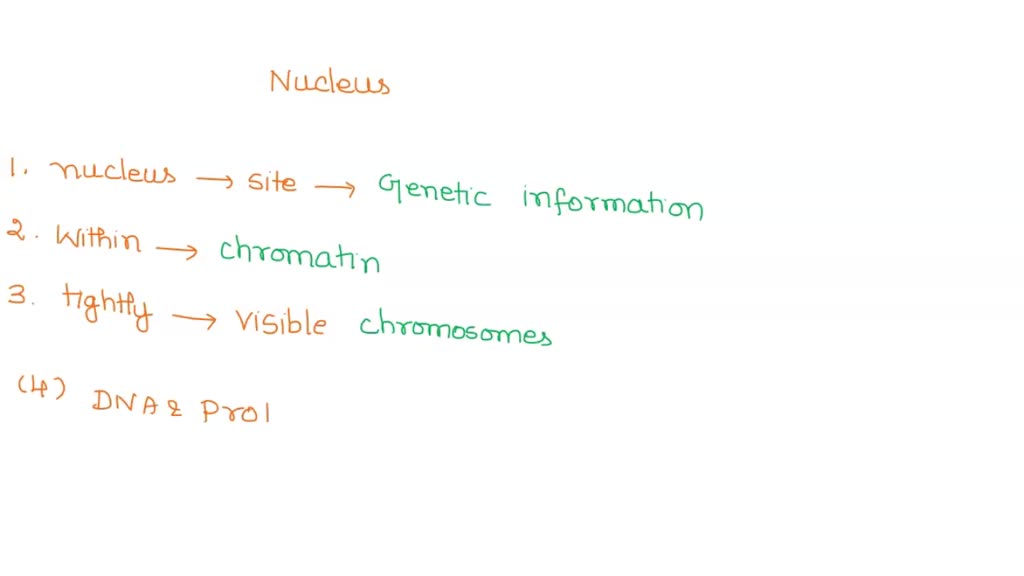 Nucleus
1. nucleus → site → Genetic information
2. Within → chromatin
3. tightly → visible chromosomes
(4) DNA &